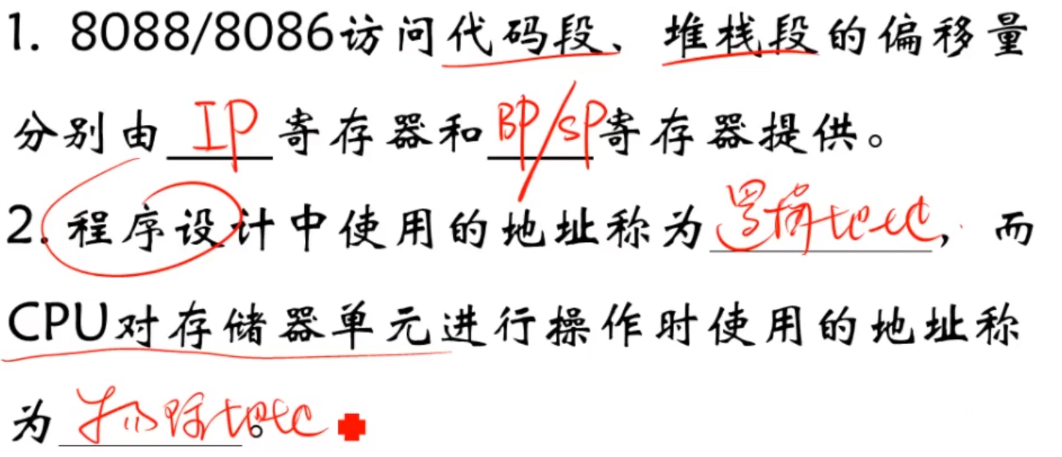 1. 8088/8086访问代码段、堆栈段的偏移量
分别由 IP 寄存器和 BP/SP 寄存器提供。
2. 程序设计中使用的地址称为 逻辑地址，而
CPU对存储器单元进行操作时使用的地址称
为 物理地址。